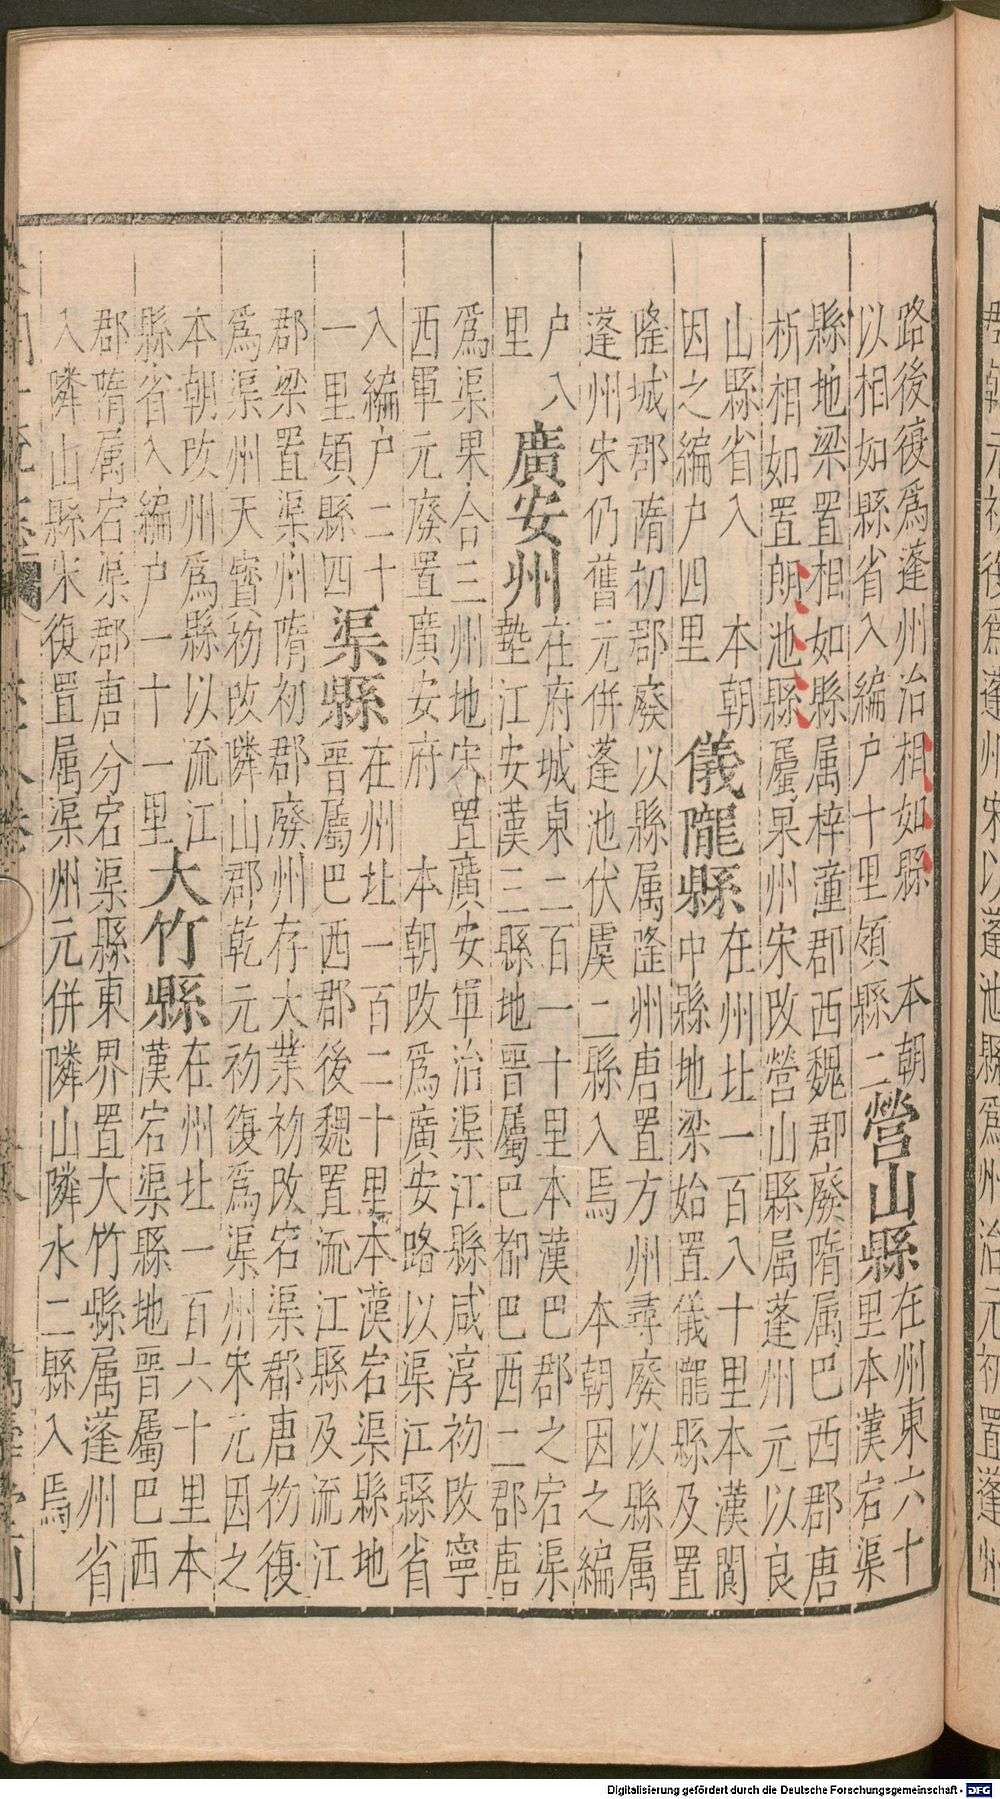 路後復為蓬州治相如縣　本朝
以相如縣省入編户十里領縣二
營山縣
在州東六十
里本漢宕渠
縣地梁置相如縣属梓童郡西魏郡廢隋属巴西郡唐
析相如置朗池縣屬果州宋改營山縣属蓬州元以良
山縣省入　本朝
因之編户四里
儀隴縣
在州北一百八十里本漢閬
中縣地梁始置儀隴縣及置
隆城郡隋初郡廢以縣属隆州唐置方州尋廢以縣属
蓬州宋仍舊元併蓬池伏虞二縣入焉　本朝因之編
户八
里
廣安州
在府城東二百一十里本漢巴郡之宕渠
墊江安漢三縣地晉屬巴郡巴西二郡唐
為渠果合三州地宋置廣安軍治渠江縣咸淳初改寧
西軍元廢置廣安府　本朝改為廣安路以渠江縣省
入編户二十
一里領縣四
渠縣
在州北一百二十里本漢宕渠縣地
晉屬巴西郡後魏置流江縣及流江
郡梁置渠州隋初郡廢州存大業初改宕渠郡唐初復
為渠州天寶初改隣山郡乾元初復為渠州宋元因之
本朝改州為縣以流江
縣省入編户一十一里
大竹縣
在州北一百六十里本
漢宕渠縣地晉屬巴西
郡隋属宕渠郡唐分宕渠縣東界置大竹縣属蓬州省
入隣山縣宋復置属渠州元併隣山隣水二縣入焉
Digitalisierung gefördert durch die Deutsche Forschungsgemeinschaft - DFG